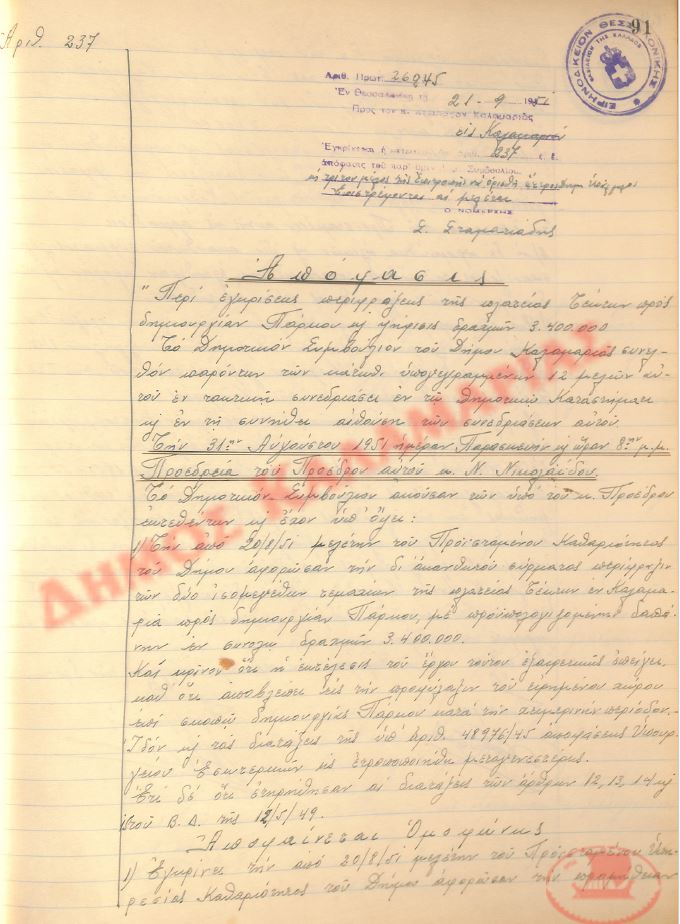 91
Ἀριθ. 237
ΕΙΡΗΝΟΔΙΚΕΙΟΝ ΘΕΣΣΑΛΟΝΙΚΗΣ
ΒΑΣΙΛΕΙΟΝ ΤΗΣ ΕΛΛΑΔΟΣ
Ἀριθ. Πρωτ. 26945
Ἐν Θεσσαλονίκῃ τῇ 21-9-1951
Πρὸς τὸν κ. Δήμαρχον Καλαμαριᾶς
εἰς Καλαμαριάν
Ἐγκρίνεται ἡ ἀριθ. 237 ἐ. ἔ.
ἀπόφασις τοῦ παρ' ὑμῖν Δημ. Συμβουλίου.
Ἐπιστρέφονται αἱ μελέται
Ο ΝΟΜΑΡΧΗΣ
Σ. Σταματιάδης
Ἀπόφασις
"Περὶ ἐγκρίσεως περιφράξεως τῆς πλατείας Σκύπων πρὸς
δημιουργίαν Πάρκου κ ψήφισις δραχμῶν 3.400.000
Τὸ Δημοτικὸν Συμβούλιον τοῦ Δήμου Καλαμαριᾶς συνελ-
θὸν παρόντων τῶν κάτωθι ὑπογεγραμμένων 12 μελῶν αὐ-
τοῦ ἐν τακτικῇ συνεδριάσει ἐν τῷ Δημοτικῷ Καταστήματι
κ ἐν τῇ συνήθει αἰθούσῃ τῶν συνεδριάσεων αὐτοῦ.
Τὴν 31ην Αὐγούστου 1951 ἡμέραν Παρασκευὴν κ ὥραν 8ην μ.μ.
Προεδρείᾳ τοῦ Προέδρου αὐτοῦ κ. Ν. Νικολαΐδου.
Τὸ Δημοτικὸν Συμβούλιον ἀκοῦσαν τῶν ὑπὸ τοῦ κ. Προέδρου
ἐκτεθέντων κ ἔχον ὑπ' ὄψει:
1) Τὴν ἀπὸ 20/8/51 μελέτην τοῦ Προϊσταμένου Καθαριότητος
τοῦ Δήμου ἀφορῶσαν τὴν δι' ἀκανθωτοῦ σύρματος περίφραξιν
τῶν δύο ἰσομεγέθων τεμαχίων τῆς πλατείας ἐν Καλαμα-
ριᾷ πρὸς δημιουργίαν Πάρκου, μὲ προϋπολογιζομένην δαπά-
νην ἐν συνόλῳ δραχμῶν 3.400.000.
Καὶ κρῖνον ὅτι ἡ ἐκτέλεσις τοῦ ἔργου τούτου ἐξαιρετικῶς ἐπείγει
καθ' ὅτι ἀποβλέπει εἰς τὴν προφύλαξιν τοῦ εἰρημένου χώρου
ἐπὶ σκοπῷ δημιουργίας Πάρκου κατὰ τὴν χειμερινὴν περίοδον.-
Ἰδὸν κ τὰς διατάξεις τῆς ὑπ' ἀριθ. 48976/45 ἀποφάσεως Ὑπουρ-
γείου Ἐσωτερικῶν ὡς ἐτροποποιήθη μεταγενεστέρως.
Ἔτι δὲ ὅτι ἐτηρήθησαν αἱ διατάξεις τῶν ἄρθρων 12, 13, 14 κ
τοῦ Β.Δ. τῆς 12/5/49.
Ἀποφαίνεται Ὁμοφώνως
1) Ἐγκρίνει τὴν ἀπὸ 20/8/51 μελέτην τοῦ Προϊσταμένου Ὑπη-
ρεσίας Καθαριότητος τοῦ Δήμου ἀφορῶσαν τὴν προμήθειαν
ΔΗΜΟΣ ΚΑΛΑΜΑΡΙΑΣ